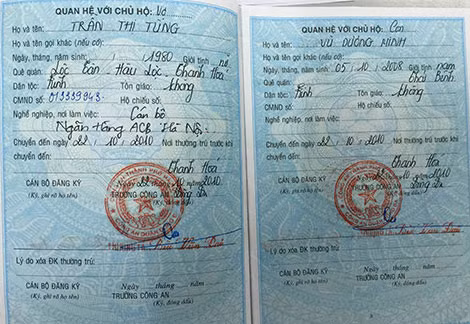 QUAN HỆ VỚI CHỦ HỘ: Vợ
Họ và tên: TRẦN THỊ TÙNG
Họ và tên gọi khác (nếu có):
Ngày, tháng, năm sinh: 1980 Giới tính: nữ
Quê quán: Lộc Tân - Hậu Lộc - Thanh Hoá
Dân tộc: Kinh Tôn giáo: không
CMND số: 013339943 Hộ chiếu số:
Nghề nghiệp, nơi làm việc: Cán bộ
Ngân hàng ACB Hà Nội.
Chuyển đến ngày 22. 10. 2010 Nơi thường trú trước khi
chuyển đến:
Thanh Hoá
Ngày 22 tháng 10 năm 2010
CÁN BỘ ĐĂNG KÝ TRƯỞNG CÔNG AN
(Ký, ghi rõ họ tên) (Ký, đóng dấu)
Lý do xóa ĐK thường trú:
Ngày..... tháng..... năm.....
CÁN BỘ ĐĂNG KÝ TRƯỞNG CÔNG AN
(Ký, ghi rõ họ tên) (Ký, đóng dấu)
QUAN HỆ VỚI CHỦ HỘ: Con
Họ và tên: VŨ DƯƠNG MINH
Họ và tên gọi khác (nếu có):
Ngày, tháng, năm sinh: 05. 10. 2008 Giới tính: nam
Quê quán: Thái Bình
Dân tộc: Kinh Tôn giáo: không
CMND số: Hộ chiếu số:
Nghề nghiệp, nơi làm việc:
Chuyển đến ngày 22. 10. 2010 Nơi thường trú trước khi
chuyển đến:
Thanh Hoá
10 năm 2010
CÁN BỘ ĐĂNG KÝ TRƯỞNG CÔNG AN
(Ký, ghi rõ họ tên) (Ký, đóng dấu)
Lý do xóa ĐK thường trú:
Ngày..... tháng..... năm.....
CÁN BỘ ĐĂNG KÝ TRƯỞNG CÔNG AN
(Ký, ghi rõ họ tên) (Ký, đóng dấu)